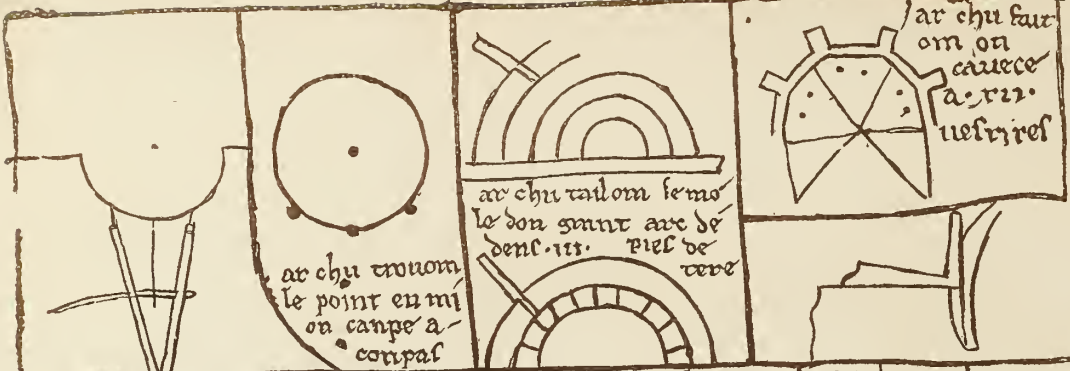 ar chu trovom
le point en mi
on canpe a-
conpas
ar chu tailom le mo
le don grant arc de
dens .III. piés de
tere
ar chu fait
om on
cavece
a .XII.
vesrires